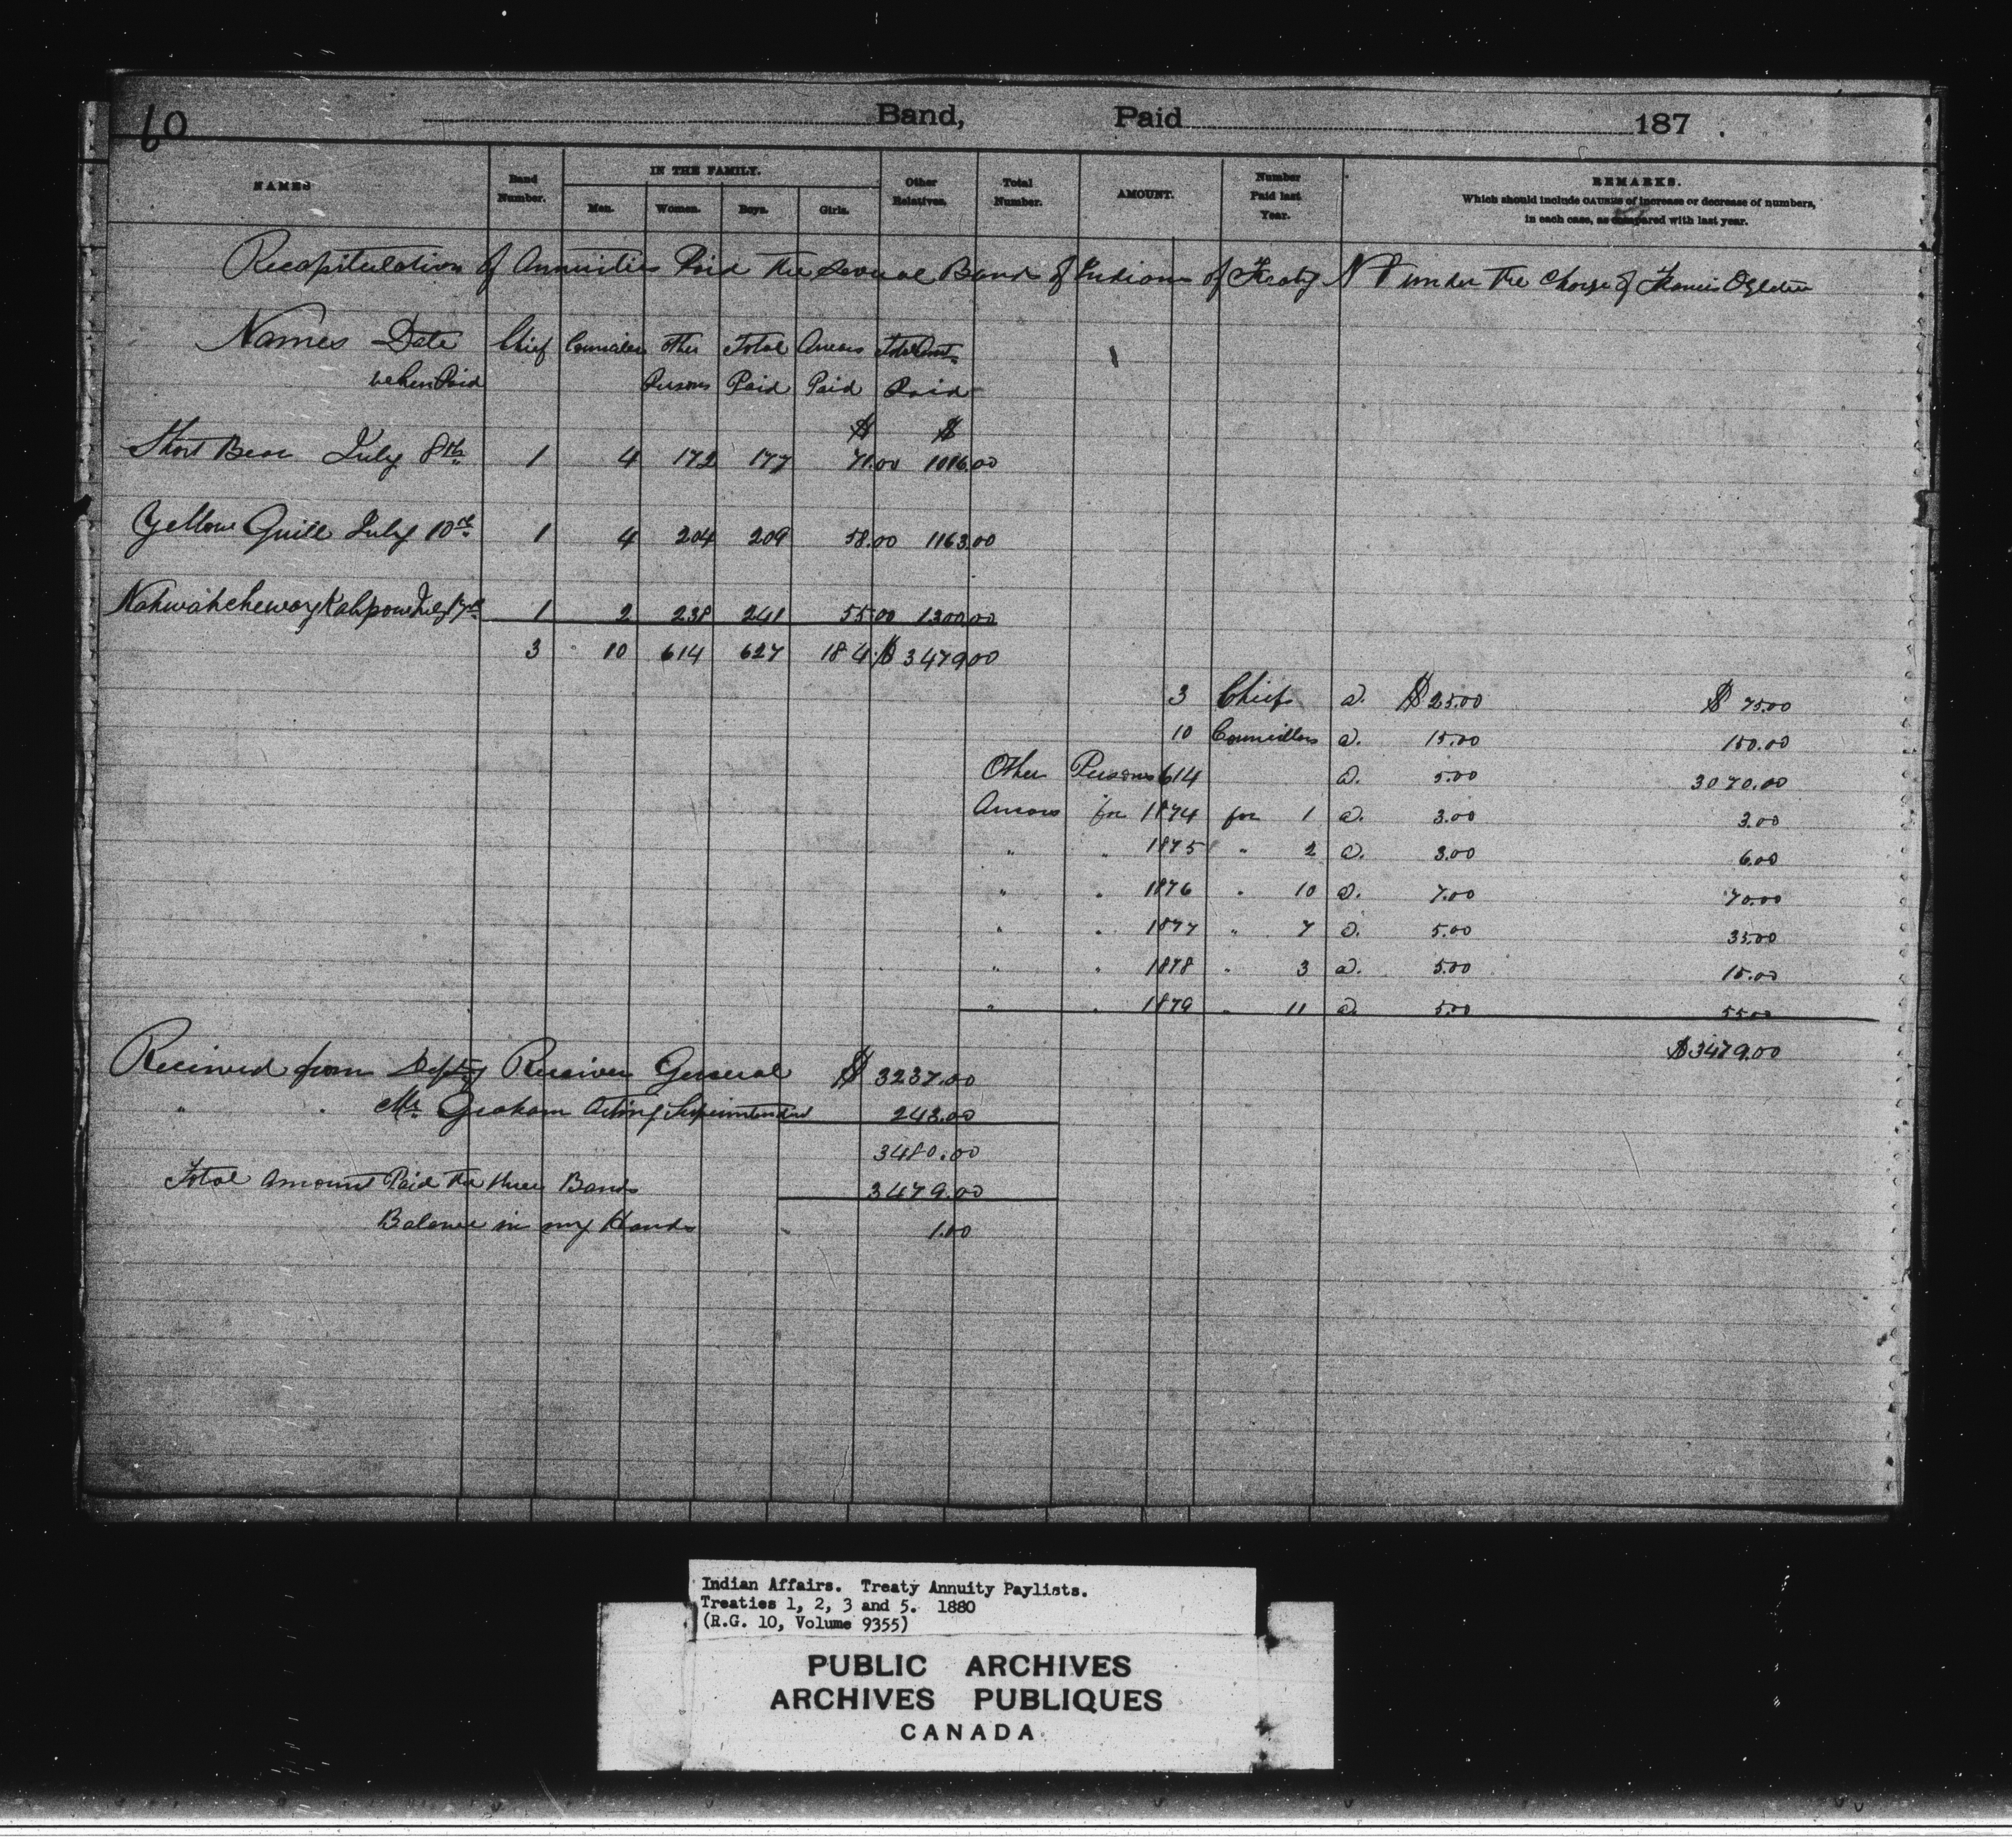 60 Band, Paid 187 .
NAMES Band Number. IN THE FAMILY. Men. Women. Boys. Girls. Other Relatives. Total Number. AMOUNT. Number Paid last Year. REMARKS.
Which should include CAUSES of increase or decrease of numbers,
in each case, as compared with last year.
Recapitulation of Annuities Paid the several Bands of Indians of Treaty No 1 under the Charge of Francis Ogletree
Names Date Chief Councillors Other Total Arrears Total Amt
when Paid Persons Paid Paid Paid
$ $
Short Bear July 8th 1 4 172 177 71.00 1016.00
Yellow Quill July 10th 1 4 204 209 58.00 1163.00
Nahwahchewaykahpow July 17th 1 2 238 241 55.00 1300.00
3 10 614 627 184. $ 3479.00
3 Chiefs a. $ 25.00 $ 75.00
10 Councillors a. 15.00 150.00
Other Persons 614 a. 5.00 3070.00
Arrears for 1874 for 1 a. 3.00 3.00
" " 1875 " 2 a. 3.00 6.00
" " 1876 " 10 a. 7.00 70.00
" " 1877 " 7 a. 5.00 35.00
" " 1878 " 3 a. 5.00 15.00
" " 1879 " 11 a. 5.00 55.00
$3479.00
Received from Depty Receiver General $ 3237.00
" " Mr. Graham Acting Superintendent 243.00
3480.00
Total amount Paid the three Bands 3479.00
Balance in my Hands 1.00
Indian Affairs. Treaty Annuity Paylists.
Treaties 1, 2, 3 and 5. 1880
(R.G. 10, Volume 9355)
PUBLIC ARCHIVES
ARCHIVES PUBLIQUES
CANADA